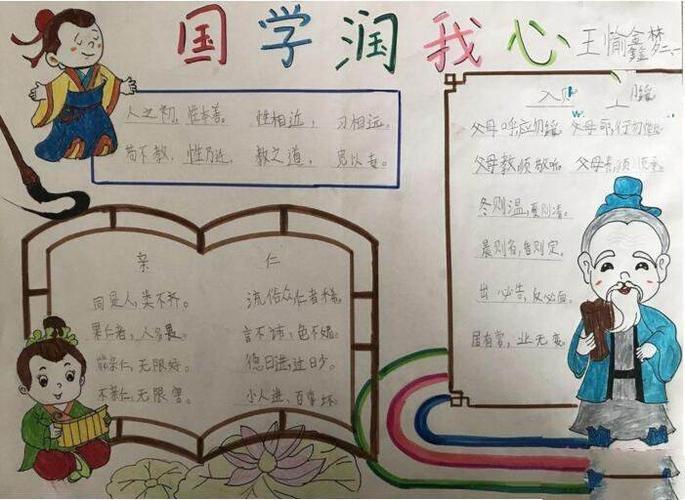 国学润我心
王愉鑫 梦
人之初,性本善。 性相近, 习相远。
苟不教,性乃迁。 教之道, 贵以专。
入则
父母呼,应勿 父母命,行勿
父母教,须敬听 父母责,须
冬则温,夏则清。
晨则省,昏则定。
出必告,反必面。
居有常,业无变。
亲 仁
同是人,类不齐。 流俗众,仁者稀。
果仁者,人多畏。 言不讳,色不媚。
能亲仁,无限好。 德日进,过日少。
不亲仁,无限害。 小人进,百事坏。